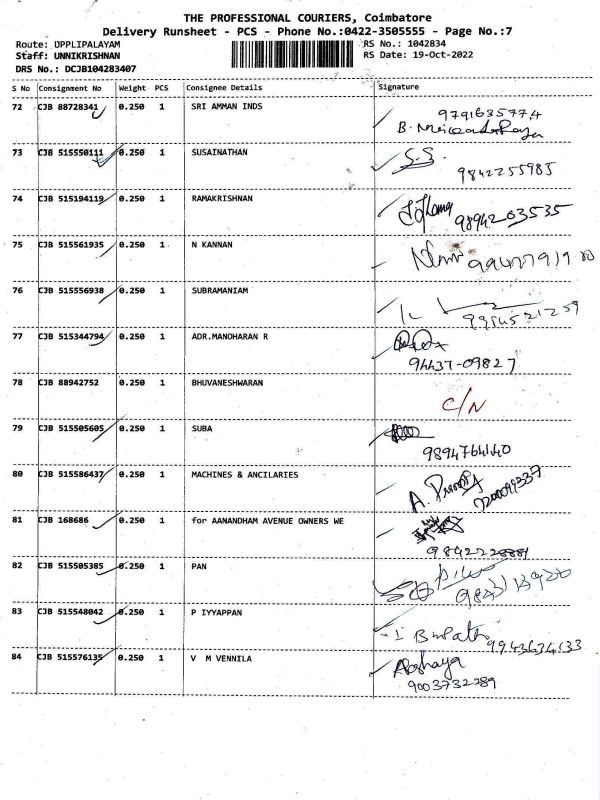 THE PROFESSIONAL COURIERS, Coimbatore
Delivery Runsheet - PCS - Phone No.:0422-3505555 - Page No.:7
Route: UPPLIPALAYAM
RS No.: 1042834
Staff: UNNIKRISHNAN
RS Date: 19-Oct-2022
DRS No.: DCJB104283407
S No Consignment No Weight PCS Consignee Details Signature
72 CJB 88728341 0.250 1 SRI AMMAN INDS 9791635774
B.
73 CJB 515550111 0.250 1 SUSAINATHAN S.S.
9842255985
74 CJB 515194119 0.250 1 RAMAKRISHNAN 9894203535
75 CJB 515561935 0.250 1 N KANNAN
76 CJB 515556938 0.250 1 SUBRAMANIAM
77 CJB 515344794 0.250 1 ADR.MANOHARAN R
94437-09827
78 CJB 88942752 0.250 1 BHUVANESHWARAN C/N
79 CJB 515505605 0.250 1 SUBA
9894764140
80 CJB 515586437 0.250 1 MACHINES & ANCILARIES A.
81 CJB 168686 0.250 1 for AANANDHAM AVENUE OWNERS WE
82 CJB 515505385 0.250 1 PAN
83 CJB 515548042 0.250 1 P IYYAPPAN 9943634133
84 CJB 515576135 0.250 1 V M VENNILA Akshaya
9003732289